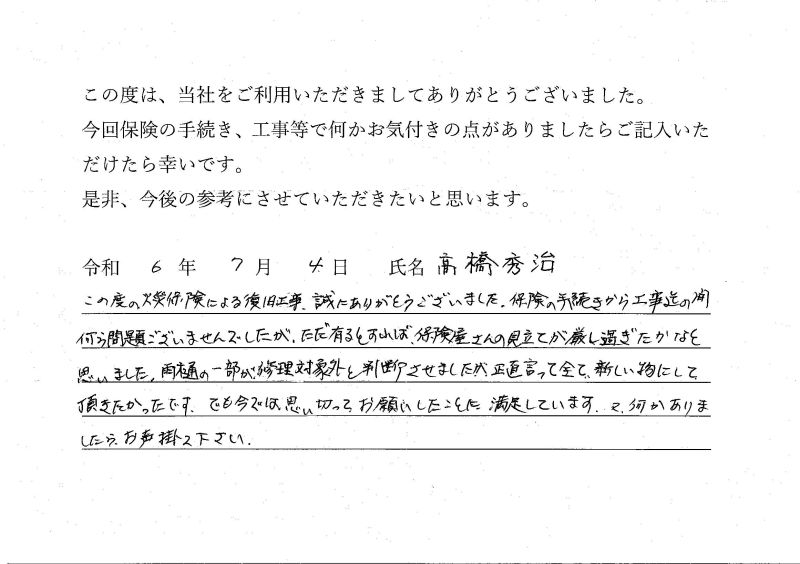 この度は、当社をご利用いただきましてありがとうございました。
今回保険の手続き、工事等で何かお気付きの点がありましたらご記入いた
だけたら幸いです。
是非、今後の参考にさせていただきたいと思います。
令和 6 年 7 月 4 日 氏名 髙橋秀治
この度の火災保険による復旧工事、誠にありがとうございました。保険の手続きから工事迄の間
何ら問題ございませんでしたが、ただ有るとすれば、保険屋さんの見立てが厳し過ぎたかなと
思いました。雨樋の一部が、修理対象外と判断させましたが、正直言って全て、新しい物にして
頂きたかったです。でも今では思い切ってお願いしたことに満足しています。又、何かありま
したら、お声掛け下さい。